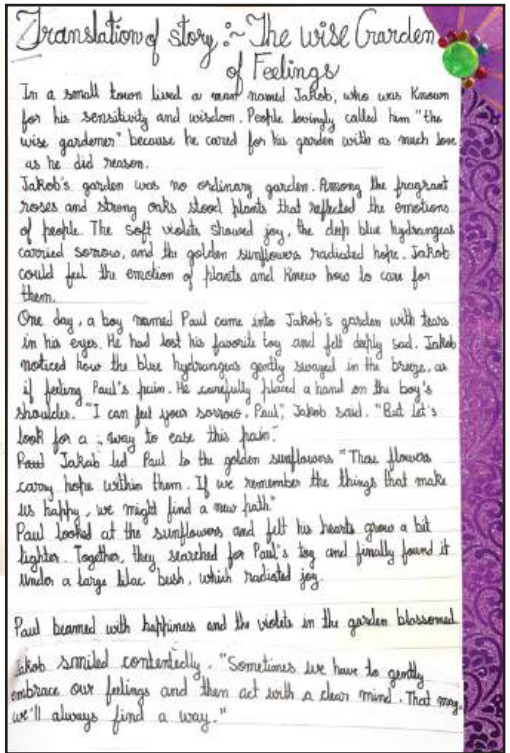 Translation of story :~ The wise Garden
of Feelings
In a small town lived a man named Jakob, who was known
for his sensitivity and wisdom. People lovingly called him "the
wise gardener" because he cared for his garden with as much love
as he did reason.
Jakob's garden was no ordinary garden. Among the fragrant
roses and strong oaks stood plants that reflected the emotions
of people. The soft violets showed joy, the deep blue hydrangeas
carried sorrow, and the golden sunflowers radiated hope. Jakob
could feel the emotion of plants and knew how to care for
them.
One day, a boy named Paul came into Jakob's garden with tears
in his eyes. He had lost his favorite toy and felt deeply sad. Jakob
noticed how the blue hydrangeas gently swayed in the breeze, as
if feeling Paul's pain. He carefully placed a hand on the boy's
shoulder. "I can feel your sorrow, Paul", Jakob said. "But let's
look for a ; way to ease this pain."
Paul Jakob led Paul to the golden sunflowers "These flowers
carry hope within them. If we remember the things that make
us happy, we might find a new path"
Paul looked at the sunflowers and felt his hearts grow a bit
lighter. Together, they searched for Paul's toy and finally found it
under a large lilac bush, which radiated joy.
Paul beamed with happiness and the violets in the garden blossomed.
Jakob smiled contentedly. "Sometimes we have to gently
embrace our feelings and then act with a clear mind. That way,
we'll always find a way."